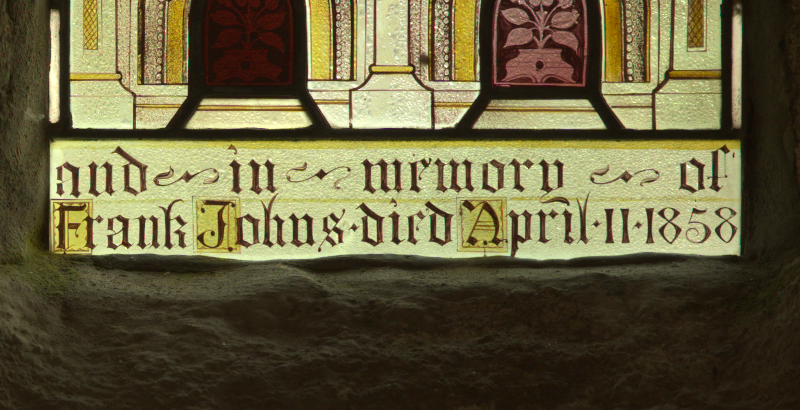 and in memory of
Frank Johns·died April·11·1858